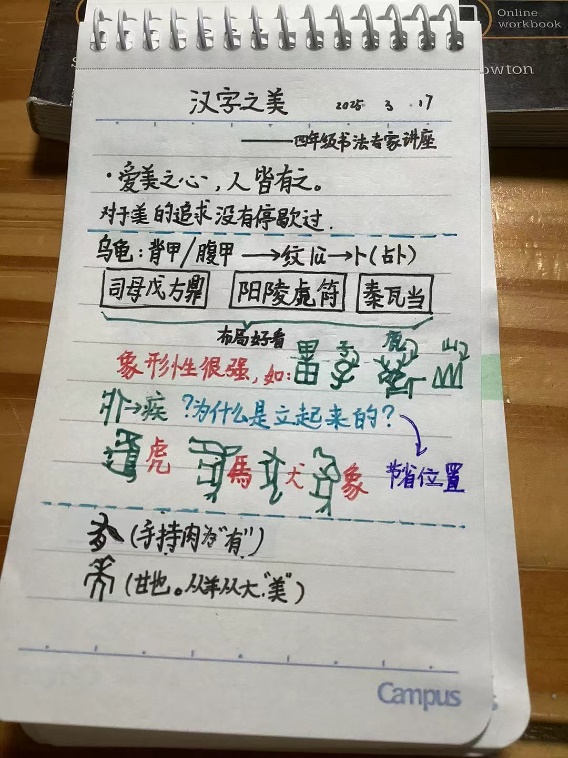 Online
workbook
owton
汉字之美 2025 3 .17
——四年级书法专家讲座
·爱美之心,人皆有之。
对于美的追求没有停歇过.
乌龟:背甲/腹甲 →纹 →卜(占卜)
司母戊方鼎 阳陵虎符 秦瓦当
布局好看
象形性很强,如:
→疾 ?为什么是立起来的?
虎 馬 犬 象 节省位置
(手持肉为“有”)
(甘也。从羊从大.“美”)
Campus